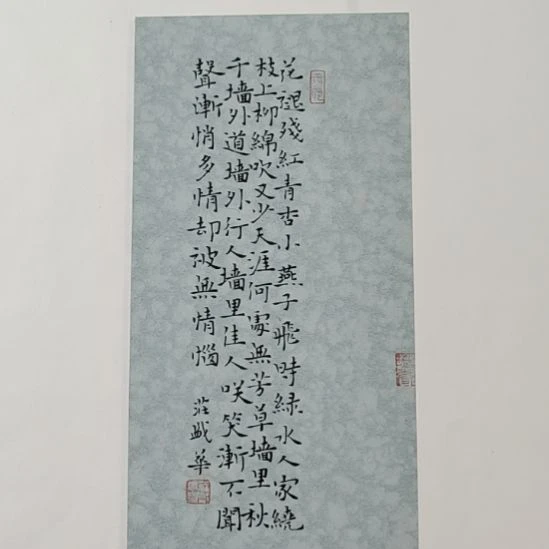 花褪殘紅青杏小燕子飛時綠水人家繞
枝上柳綿吹又少天涯何處無芳草墻里秋
千墻外道墻外行人墻里佳人咲笑漸不聞
聲漸悄多情却被無情惱
莊 華